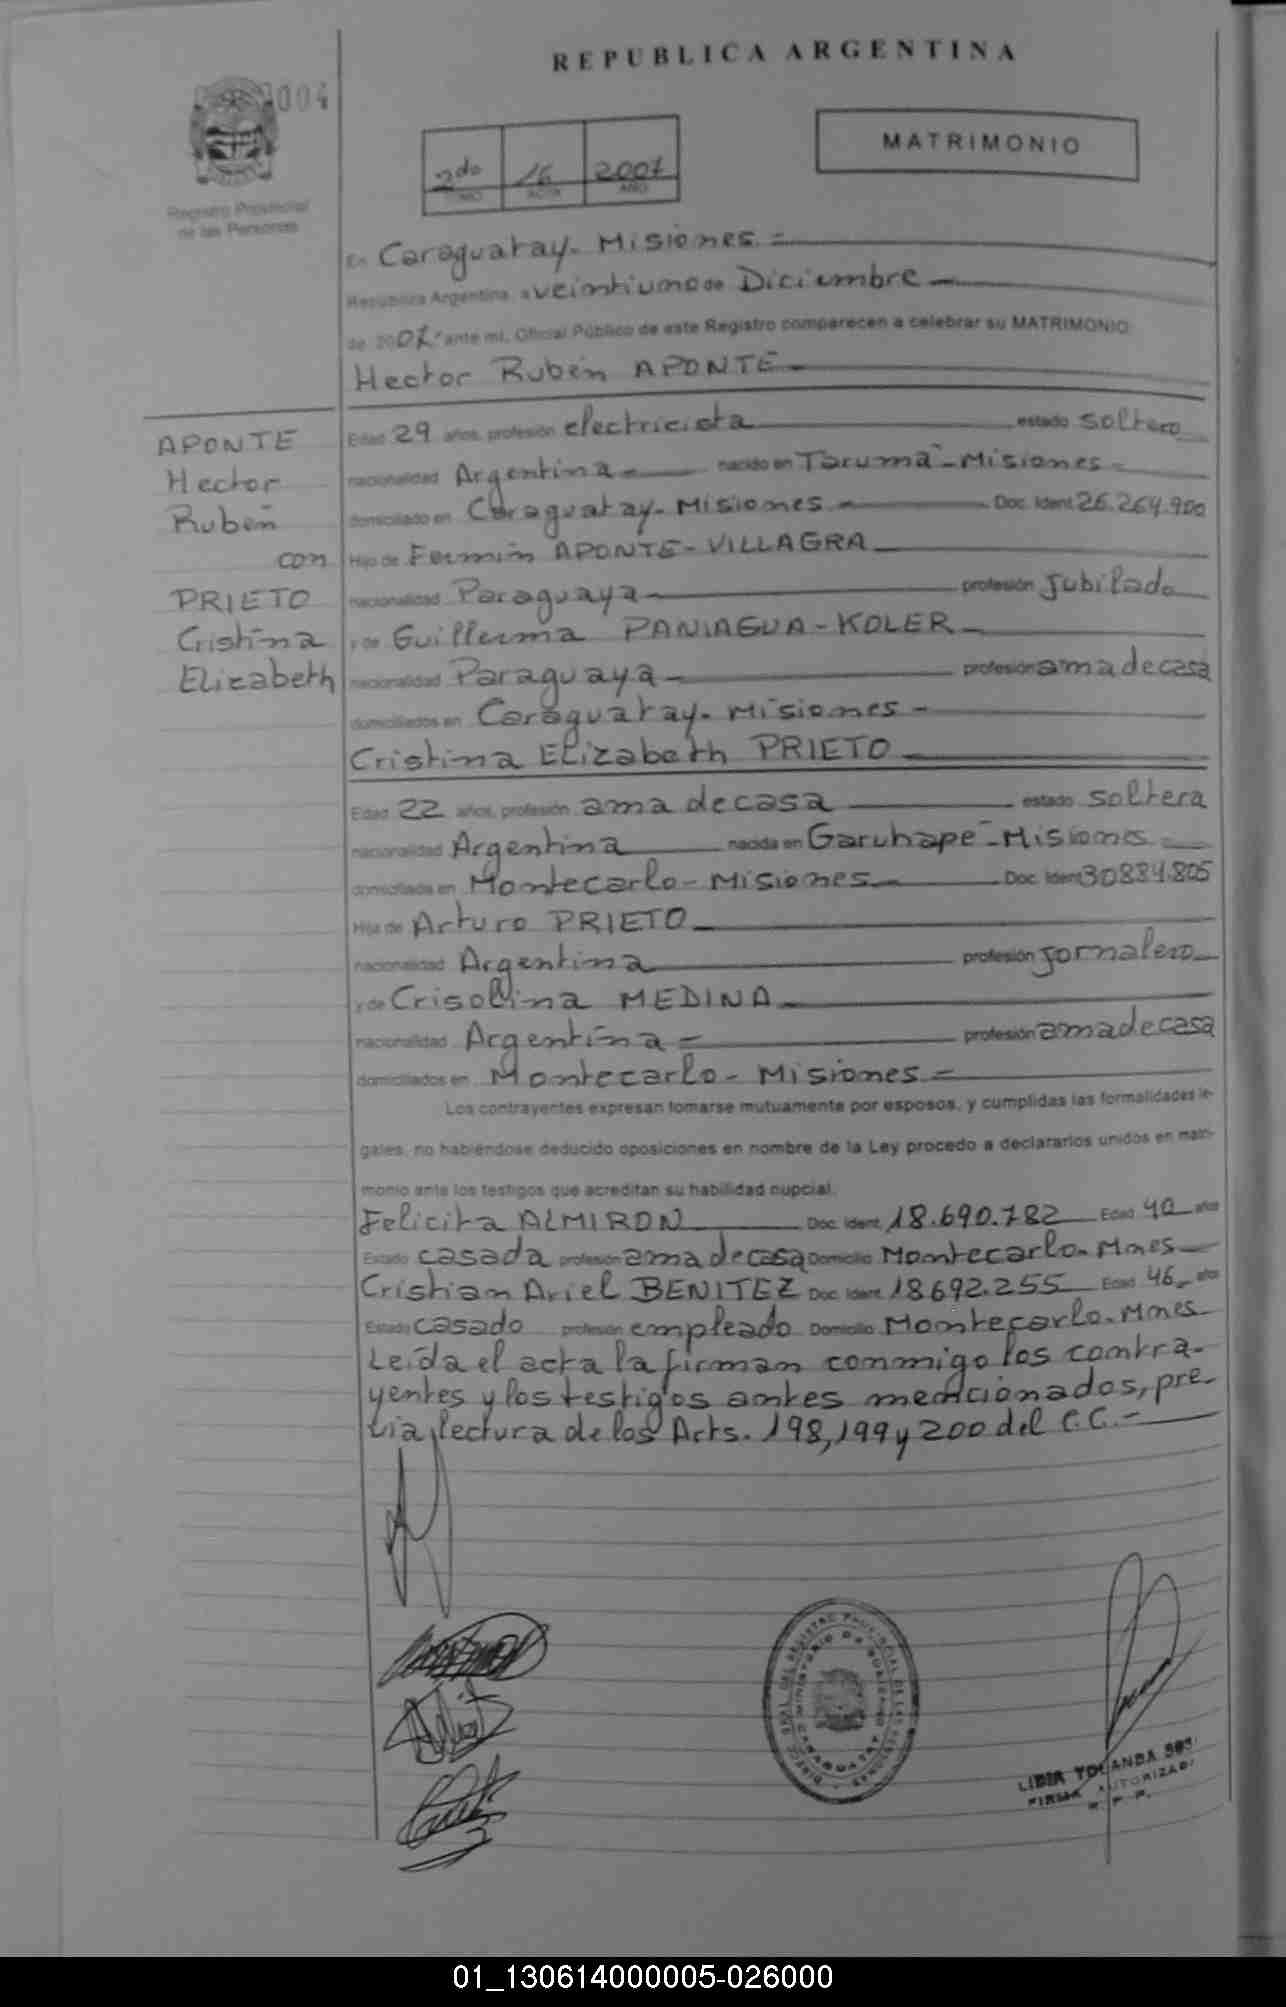 REPUBLICA ARGENTINA
004
MATRIMONIO
2do 16 2007
TOMO ACTA AÑO
Registro Provincial
de las Personas
En Caraguatay-Misiones.=
República Argentina, a veintiuno de Diciembre
de 2007.- ante mi, Oficial Público de este Registro comparecen a celebrar su MATRIMONIO:
Hector Rubén APONTE
Edad 29 años, profesión electricista estado soltero
nacionalidad Argentina nacido en Tarumá-Misiones
domiciliado en Caraguatay-Misiones Doc. Ident. 26.264.900
Hijo de Fermín APONTE-VILLAGRA
nacionalidad Paraguaya profesión Jubilado
y de Guillerma PANIAGUA-KOLER
nacionalidad Paraguaya profesión ama de casa
domiciliados en Caraguatay-Misiones
APONTE
Hector
Rubén
con
PRIETO
Cristina
Elizabeth
Cristina Elizabeth PRIETO
Edad 22 años, profesión ama de casa estado soltera
nacionalidad Argentina nacida en Garuhapé-Misiones
domiciliada en Montecarlo-Misiones Doc. Ident. 30884.805
Hija de Arturo PRIETO
nacionalidad Argentina profesión Jornalero
y de Crisolina MEDINA
nacionalidad Argentina profesión ama de casa
domiciliados en Montecarlo-Misiones
Los contrayentes expresan tomarse mutuamente por esposos, y cumplidas las formalidades le-
gales, no habiéndose deducido oposiciones en nombre de la Ley procedo a declararlos unidos en matri-
monio ante los testigos que acreditan su habilidad nupcial.
Felicita ALMIRON Doc. Ident. 18.690.782 Edad 40 años
Estado casada profesión ama de casa Domicilio Montecarlo-Mnes
Cristian Ariel BENITEZ Doc. Ident. 18692.255 Edad 46 años
Estado casado profesión empleado Domicilio Montecarlo-Mnes
Leída el acta la firman conmigo los contra-
yentes y los testigos antes mencionados, pre-
via lectura de los Arts. 198, 199 y 200 del C.C.-
LIDIA YOLANDA
FIRMA AUTORIZADA
R. P. P.
01_130614000005-026000